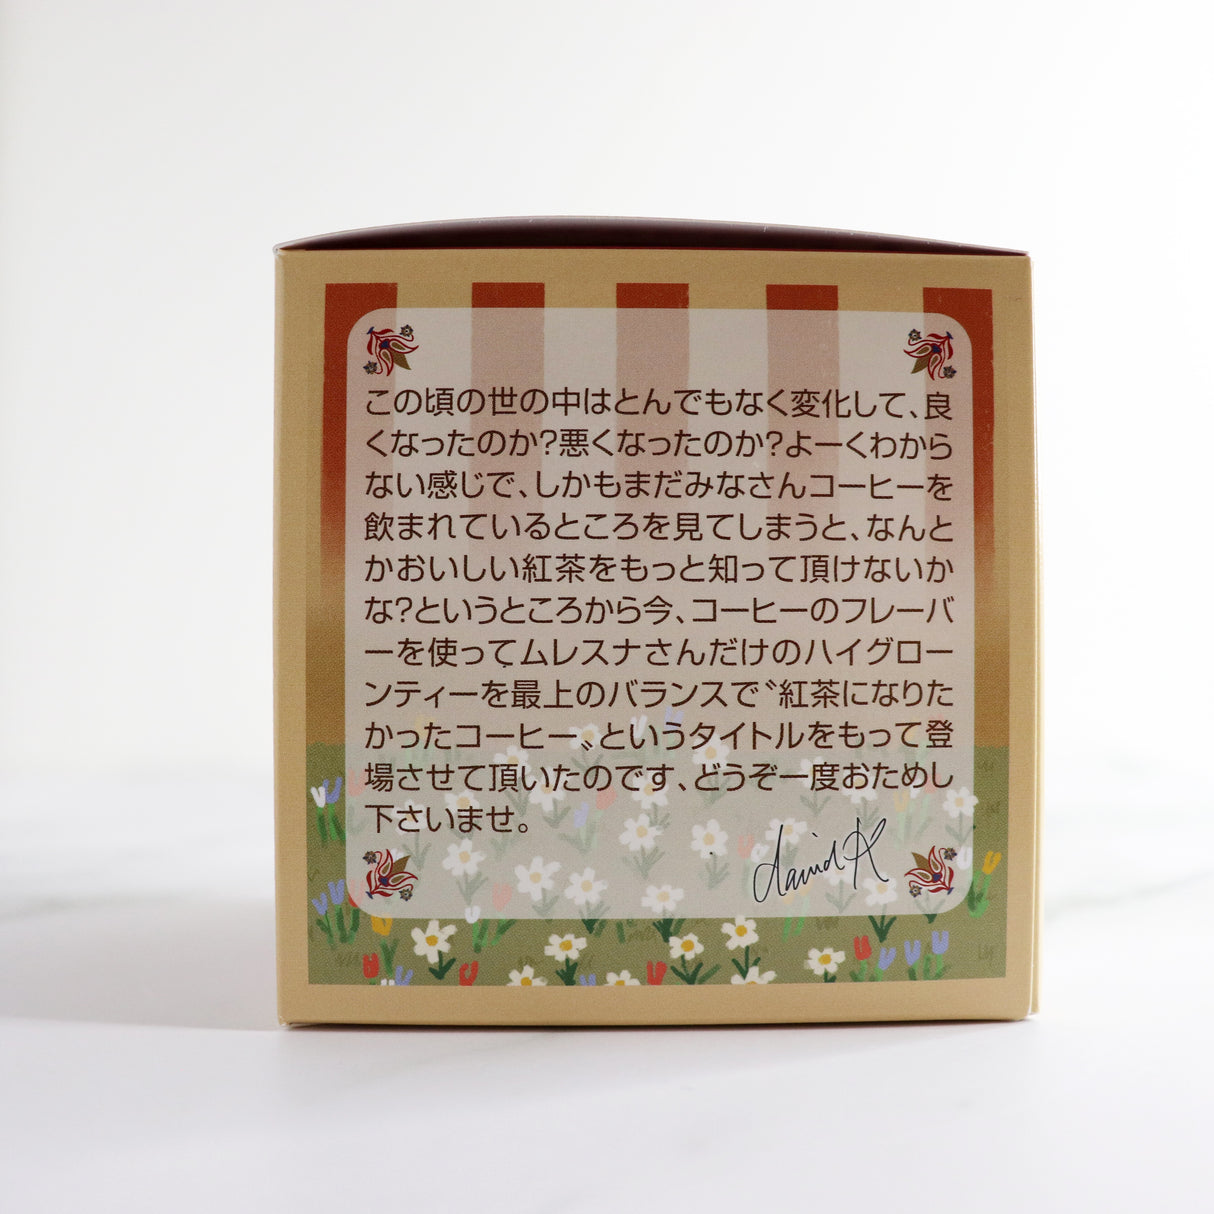 この頃の世の中はとんでもなく変化して、良
くなったのか?悪くなったのか?よーくわから
ない感じで、しかもまだみなさんコーヒーを
飲まれているところを見てしまうと、なんと
かおいしい紅茶をもっと知って頂けないか
な?というところから今、コーヒーのフレーバ
ーを使ってムレスナさんだけのハイグロー
ンティーを最上のバランスで〝紅茶になりた
かったコーヒー〟というタイトルをもって登
場させて頂いたのです、どうぞ一度おためし
下さいませ。
david K